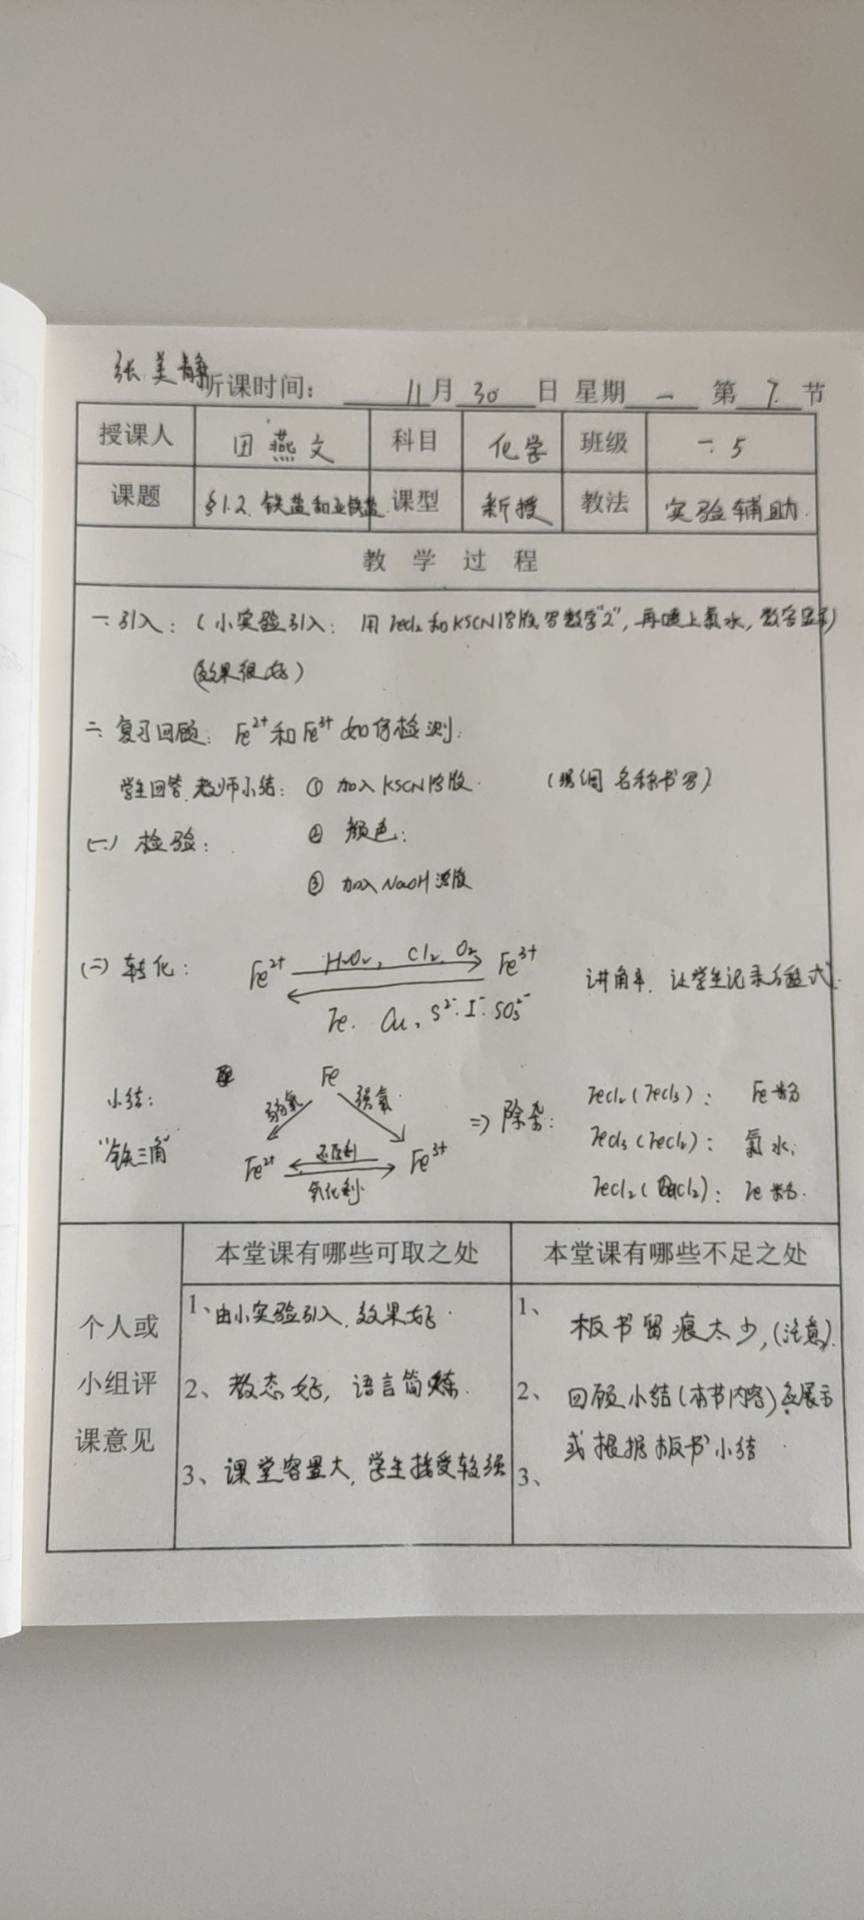 张美静
听课时间: 11月30日 星期一 第7节
授课人 田燕文 科目 化学 班级 一.5
课题 §1.2 铁盐和亚铁盐 课型 新授 教法 实验辅助.
教 学 过 程
一. 引入: (小实验引入: 用FeCl₂和KSCN溶液写数字"2", 再喷上氯水, 数字显示)
(效果很好)
二. 复习回顾: Fe²⁺和Fe³⁺如何检测:
学生回答. 老师小结: ① 加入KSCN溶液. ( 名称书写)
(一) 检验: ② 颜色:
③ 加入NaOH溶液
(二) 转化: Fe²⁺ H₂O₂, Cl₂, O₂ Fe³⁺ 讲解, 让学生记录方程式.
Fe. Cu, S²⁻. I⁻. SO₃²⁻
小结: Fe
弱氧 强氧 ⇒ 除杂: FeCl₂(FeCl₃): Fe粉
"铁三角" Fe²⁺ 还原剂 Fe³⁺ FeCl₃(FeCl₂): 氯水;
氧化剂 FeCl₂(CuCl₂): Fe粉.
个人或小组评课意见
本堂课有哪些可取之处
1、由小实验引入, 效果好.
2、教态好, 语言简练.
3、课堂容量大, 学生接受较强
本堂课有哪些不足之处
1、板书留痕太少, (注意).
2、回顾小结(本节内容)应展示
或根据板书小结.
3、